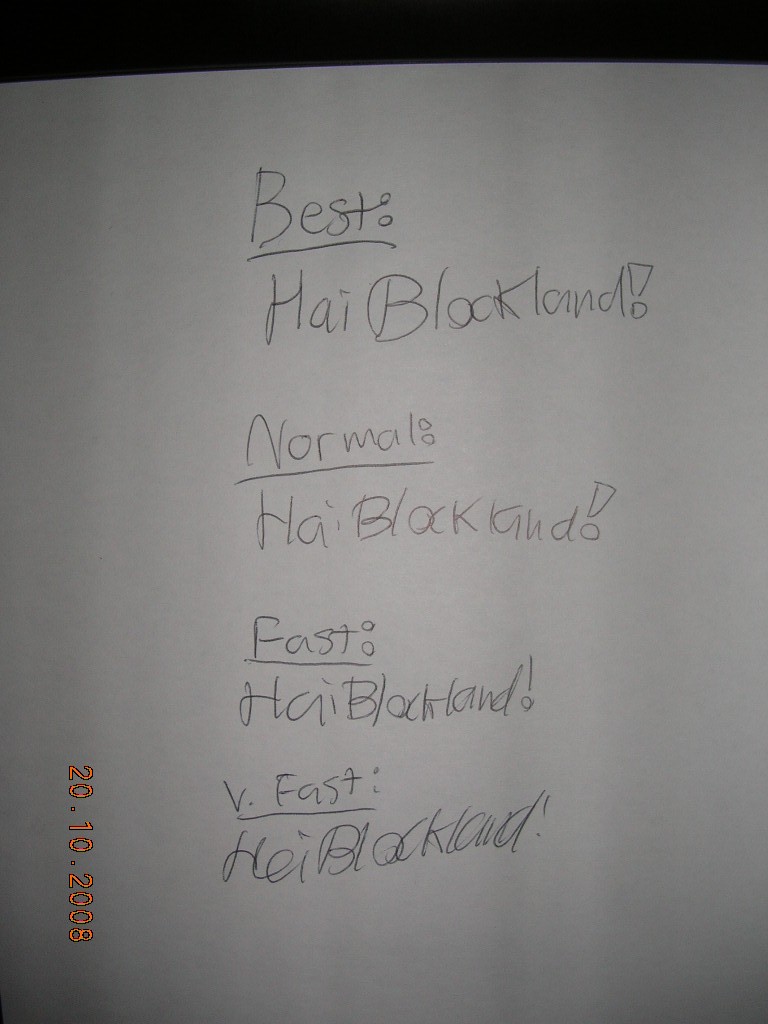 Best:
Hai Blockland!
Normal:
Hai Blockland!
Fast:
Hai Blockland!
V. Fast:
Hai Blockland!
20.10.2008